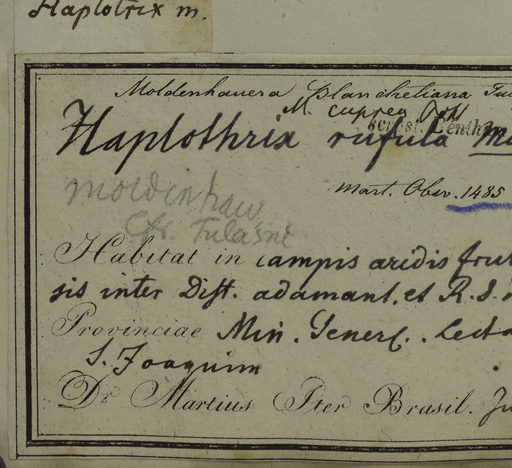 Haplotrix m.
Moldenhauera Blanchetiana Tul
M. cuprea Pohl
script. Benth
Haplothrix rufula Ma
Mart. Obsr. 1485
moldenhaw
Cfr. Tulasne
Habitat in campis aridis frut
sis inter Distr. adamant. et R. S.
Provinciae Min. Generf. . Lecta
S. Joaquim
Dr Martius Iter Brasil. Ju